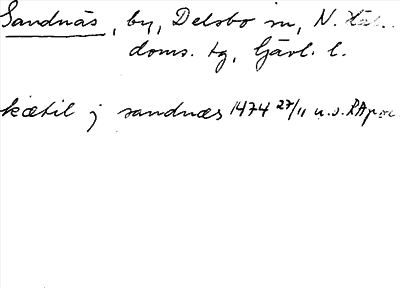 Sandnäs, by, Delsbo sn, N. Häl..
doms. tg, Gävl. l.
kætil j sandnæs 1474 27/11 u. s. RAp